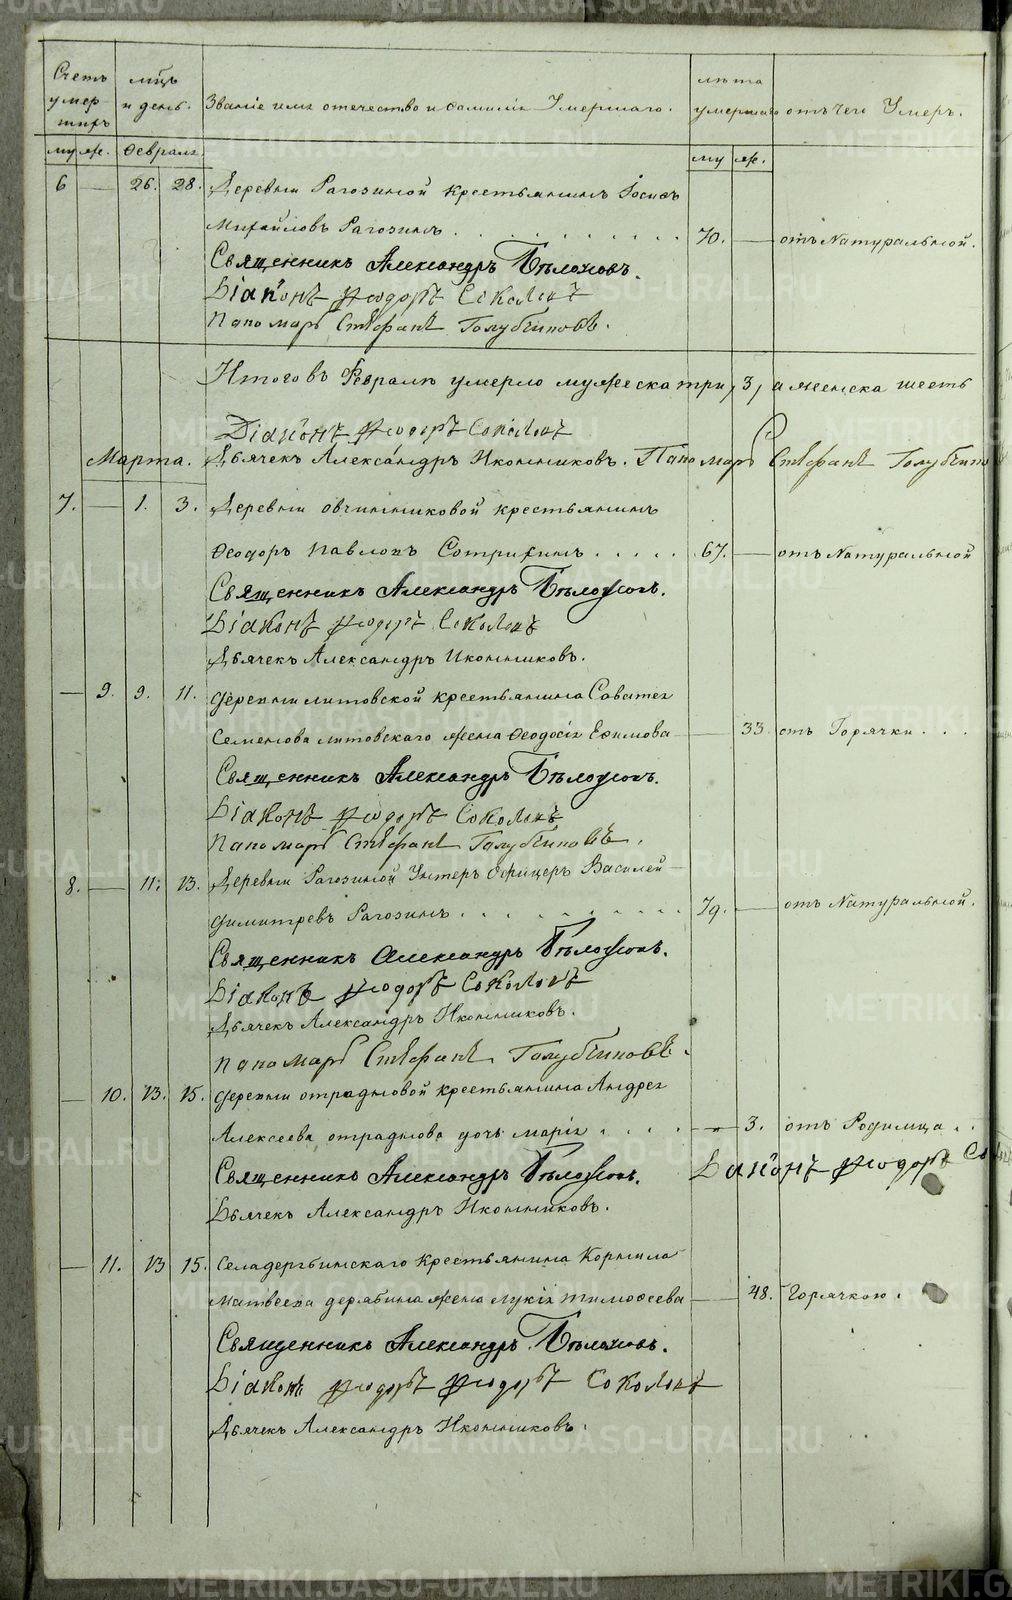 Счетъ умер-шихъ
мцъ и день.
Званіе имя отечество и фамилія Умершаго.
лѣта умершаго
отъ чего Умеръ.
му ж. Февраля му ж.
6 — 26. 28. Деревни Рагозиной крестьянинъ Іосифъ
Михайловъ Рагозинъ . . . 70. — отъ Натуральной.
Священникъ Александръ Бѣлоусовъ.
Діаконъ Ѳеодоръ Соколовъ
Пономарь Стефанъ Голубчиковъ.
Итого въ Февралѣ умерло мужеска три, 3, а женска шесть
Діаконъ Ѳеодоръ Соколовъ
Марта. Дьячекъ Александръ Иконниковъ. Пономарь Стефанъ Голубчико
7. — 1. 3. Деревни овчинниковой крестьянинъ
Ѳеодоръ Павловъ Сотрихинъ . . . . . 67. — отъ Натуральной
Священникъ Александръ Бѣлоусовъ.
Діаконъ Ѳеодоръ Соколовъ
Дьячекъ Александръ Иконниковъ.
— 9. 9. 11. деревни литовской крестьянина Саватея
Семенова литовскаго жена Ѳеодосія Ефимова — 33. отъ Горячки . . .
Священникъ Александръ Бѣлоусовъ.
Діаконъ Ѳеодоръ Соколовъ
Пономарь Стефанъ Голубчиковъ.
8. — 11. 13. Деревни Рагозиной Унтеръ Офицеръ Василей
Димитревъ Рагозинъ . . . 79. — отъ Натуральной.
Священникъ Александръ Бѣлоусовъ.
Діаконъ Ѳеодоръ Соколовъ
Дьячекъ Александръ Иконниковъ.
Пономарь Стефанъ Голубчиковъ.
— 10. 13. 15. деревни отрадновой крестьянина Андрея
Алексеева отраднова дочь марія . . . . — 3. отъ Родимца . .
Священникъ Александръ Бѣлоусовъ. Діаконъ Ѳеодоръ Со
Дьячекъ Александръ Иконниковъ.
— 11. 13 15. Села дербинскаго Крестьянина Корнила
Матвеева дерябина жена лукія тимоѳеева — 48. Горячкою.
Священникъ Александръ Бѣлоусовъ.
Діаконъ Ѳеодоръ Ѳеодоръ Соколовъ
Дьячекъ Александръ Иконниковъ.
METRIKI.GASO-URAL.RU